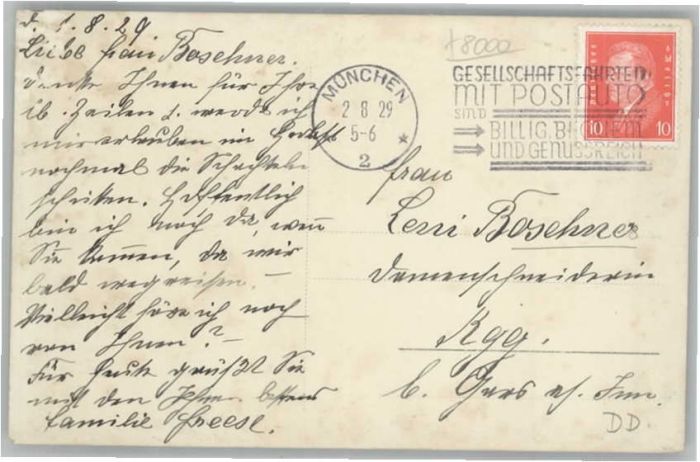 d. 1.8.29
Liebe Frau Boschner.
danke Ihnen für Ihre
lb. Zeilen u. werde ich
mir erlauben im Herbst
nochmal die Schachteln
schicken. Hoffentlich
bin ich noch da, wenn
Sie kommen, da wir
bald wegreisen. –
Vielleicht höre ich noch
von Ihnen? –
Für heute grüßt Sie
mit den Ihren bestens
Familie Freese.
78000
MÜNCHEN
2 8 29
5-6
2
GESELLSCHAFTSFAHRTEN
MIT POSTAUTO
SIND
BILLIG, BEQUEM
UND GENUSSREICH
10 10
Frau
Leni Boschner
Damenschneiderin
Kgg.
b. Gars a/ Inn.
DD.